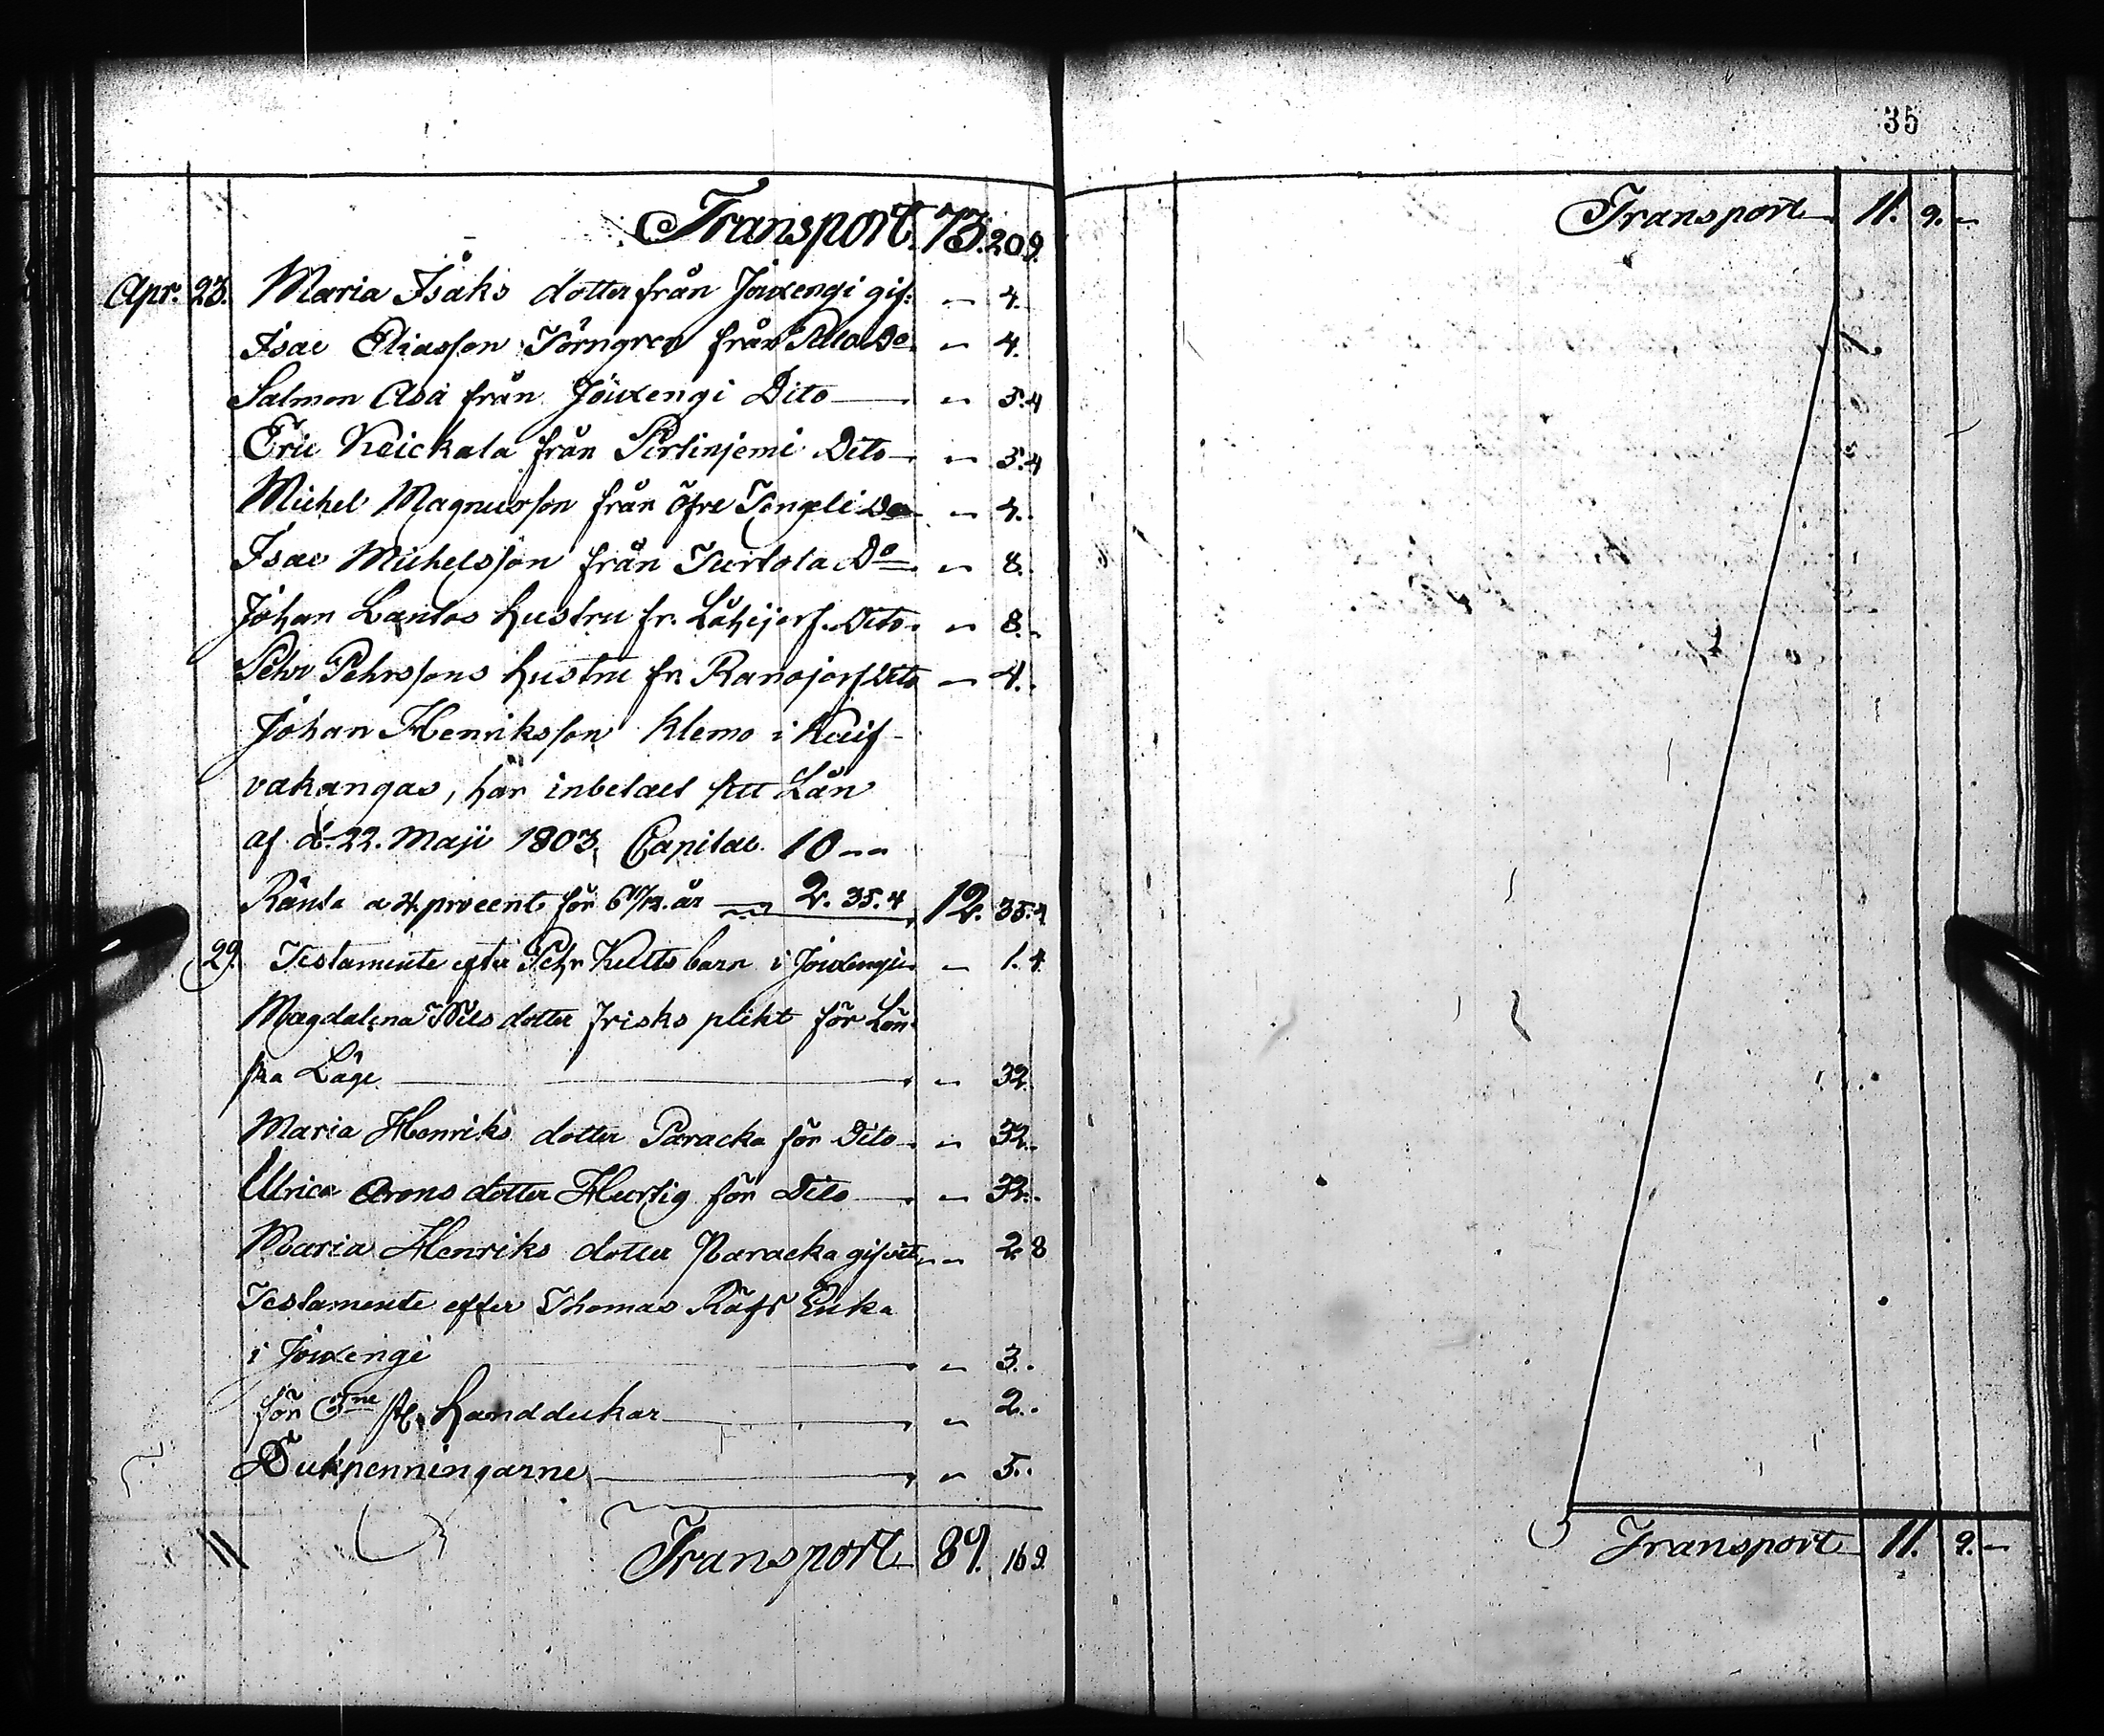 35
Transport 73. 20 9.
Apr. 23. Maria Isaks dotter från Jouxengi gif: " 4.
Isac Eliasson Törngren från Pello Do " 4.
Salmon Asa från Jouxengi Dito " 5. 4
Eric Keickala från Pirtinjemi Dito " 5. 4
Michel Magnusson från öfre Tengeli Do " 4.
Isac Michelsson från Turtola Do " 8.
Johan Lantos hustru fr. Låhijerf. Dito " 8.
Pehr Pehrssons hustru fr. Ranojerf Dito " 4.
Johan Henriksson Klemo i Kuif-
vakangas, har inbetalt sitt Lån
af d. 22. Maji 1803. Capital 10 " "
Ränta a 4 procent för 6 11/12 år 2. 35. 4 12. 35. 4
29. Testamente efter Pehr barn i Jouxengi " 1. 4
Magdalena Nils dotter Frisks plikt för Lön-
ska Läge " 32.
Maria Henriks dotter Paracka för Dito " 32.
Ulrica Arons dotter Hurtig för Dito " 32.
Maria Henriks dotter Paracka gifvit " 2. 8
Testamente efter Thomas Räfs Enka
i Jouxengi " 3.
för 3ne st. Handdukar " 2.
Dukpenningarne " 5.
Transport 89. 16 9.
Transport 11. 9. "
Transport 11. 9. "